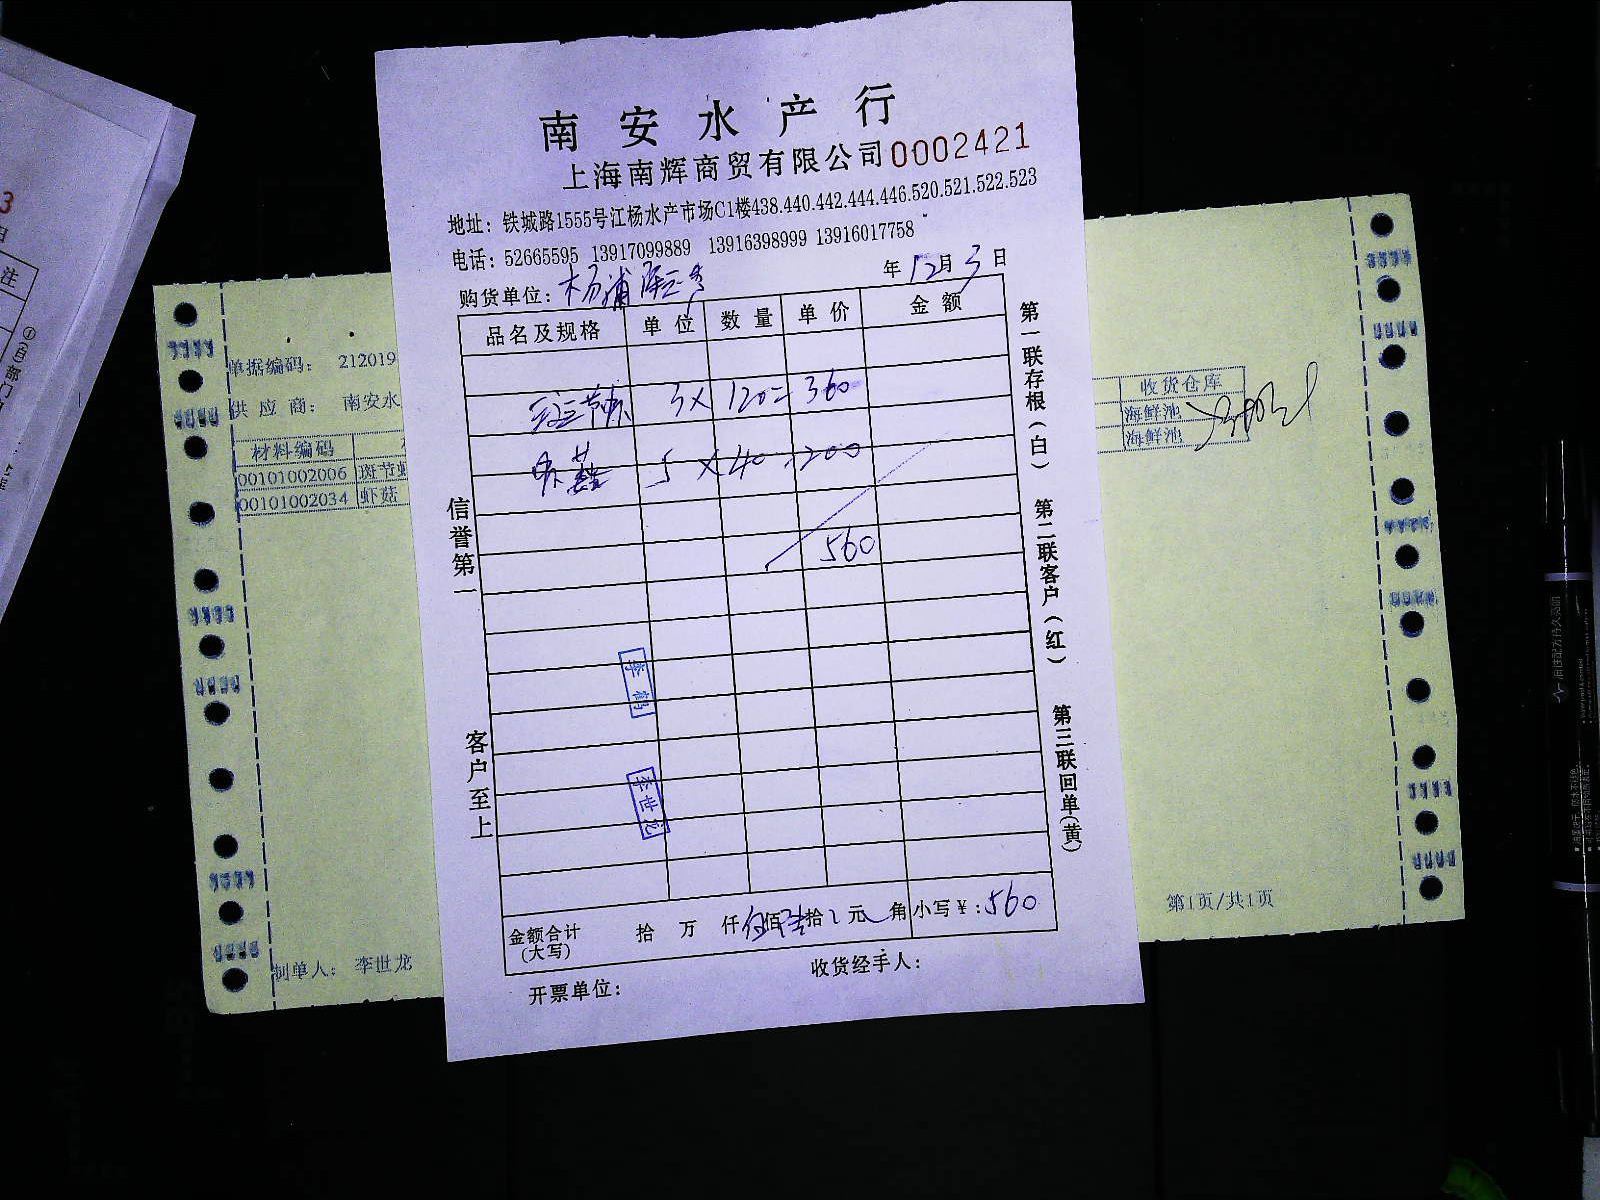 南安水产行
上海南辉商贸有限公司 0002421
地址：铁城路1555号江杨水产市场C1楼438.440.442.444.446.520.521.522.523
电话：52665595 13917099889 13916398999 13916017758
年 12月 3日
购货单位：杨浦
品名及规格 单位 数量 单价 金额
斑节虾 3 X 120= 360
虾菇 5 X 40 200
560
金额合计(大写) 拾 万 仟 伍佰 陆拾 元 角 小写￥：560
开票单位： 收货经手人：
信誉第一
客户至上
第一联存根（白）
第二联客户（红）
第三联回单（黄）
李鹤
李世龙
单据编码： 212019
供应商： 南安水
材料编码
00101002006 斑节虾
00101002034 虾菇
制单人： 李世龙
收货仓库
海鲜池
海鲜池
第1页/共1页
3
注